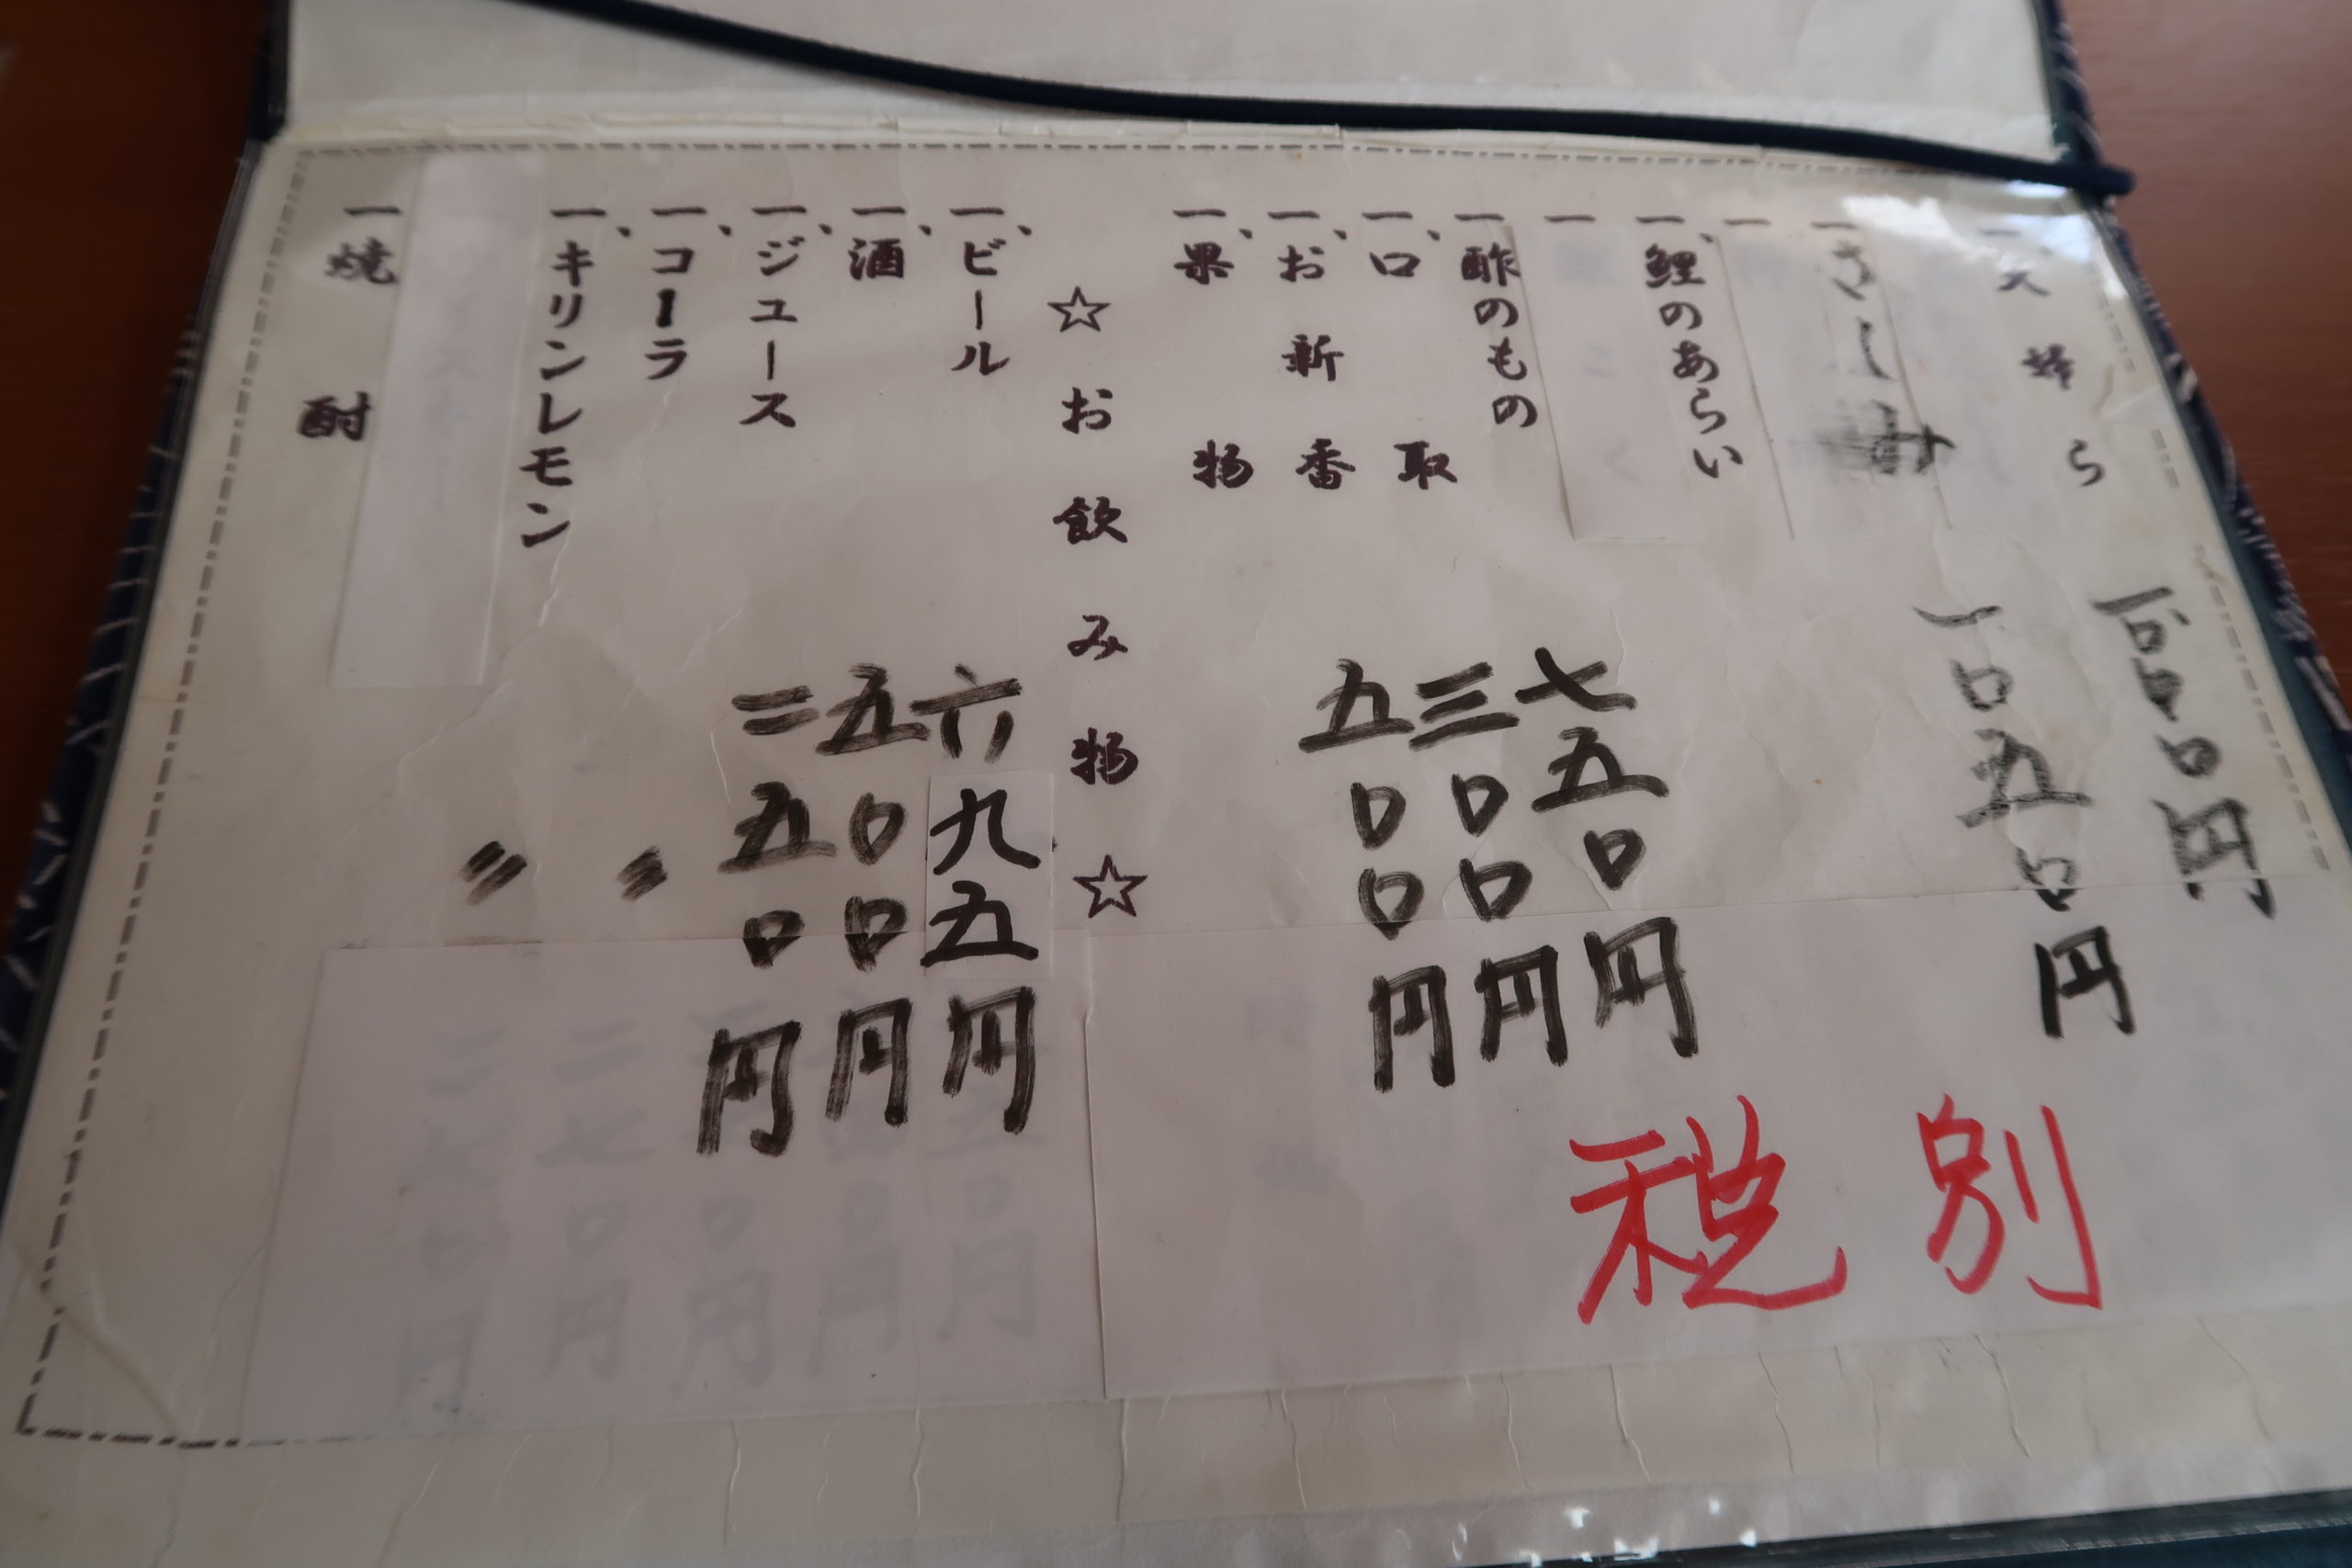 一、天婦ら
一さしみ 一〇五〇円
一
一、鯉のあらい
一
一酢のもの 七五〇円
一、口取 三〇〇円
一、お新香 五〇〇円
一、果物
☆お飲み物☆
一、ビール 六九五円
一、酒 五〇〇円
一、ジュース 二五〇円
一、コーラ 〃
一、キリンレモン 〃
一焼酎
税別